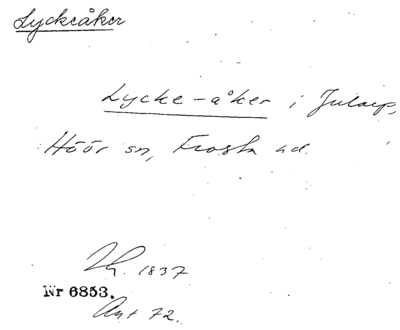 Lyckeåker
Lycke-åker i Jularp,
Höör sn, Frosta hd.
1837
Nr 6853.
Ant 72.